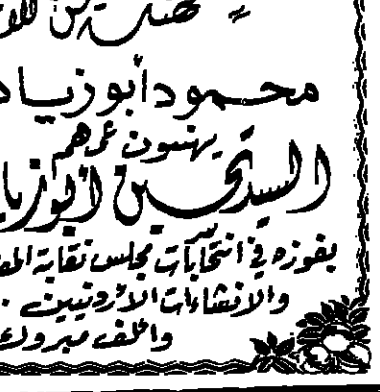 تهنئة من الا
محمود أبو زياد
يهنئون عمهم
السيد تحسين أبو زيا
بفوزه في انتخابات مجلس نقابة المق
والانشاءات الاردنيين .
والف مبروك